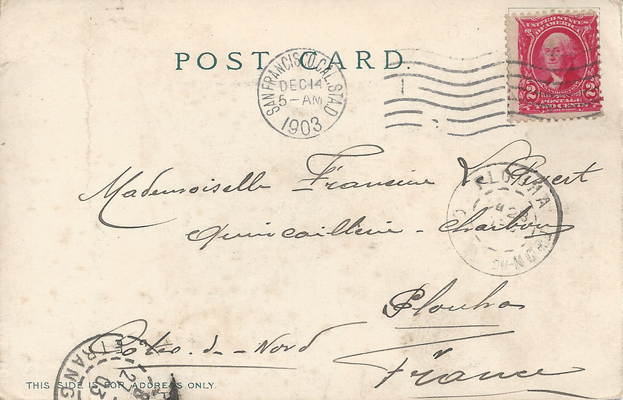 POST CARD.
SAN FRANCISCO, CAL. STA. D
DEC 14
5-AM
1903
UNITED STATES OF AMERICA
2 2
POSTAGE
TWO CENTS
Mademoiselle Francine Le
Quincaillerie - Charbon
PLOUHA
Plouha
Côtes-du-Nord
France
ETRANG
28
03
THIS SIDE IS FOR ADDRESS ONLY.